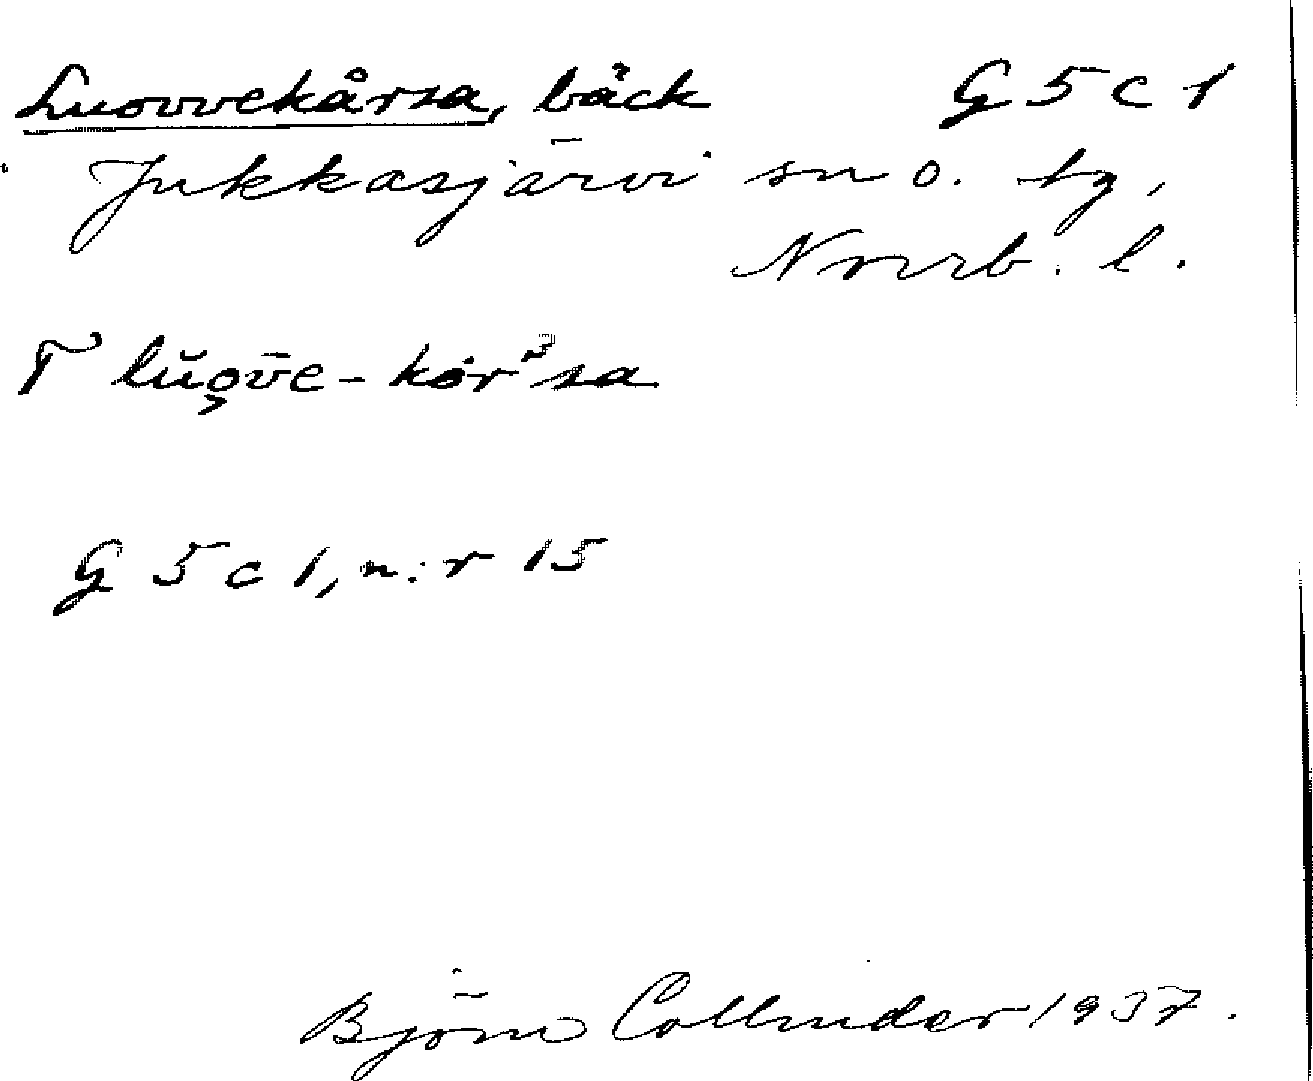 Luovvekårsa, bäck G5c1
Jukkasjärvi sn o. tg,
Norrb. l.
G5c1, n:r 15
Björn Collinder 1937.